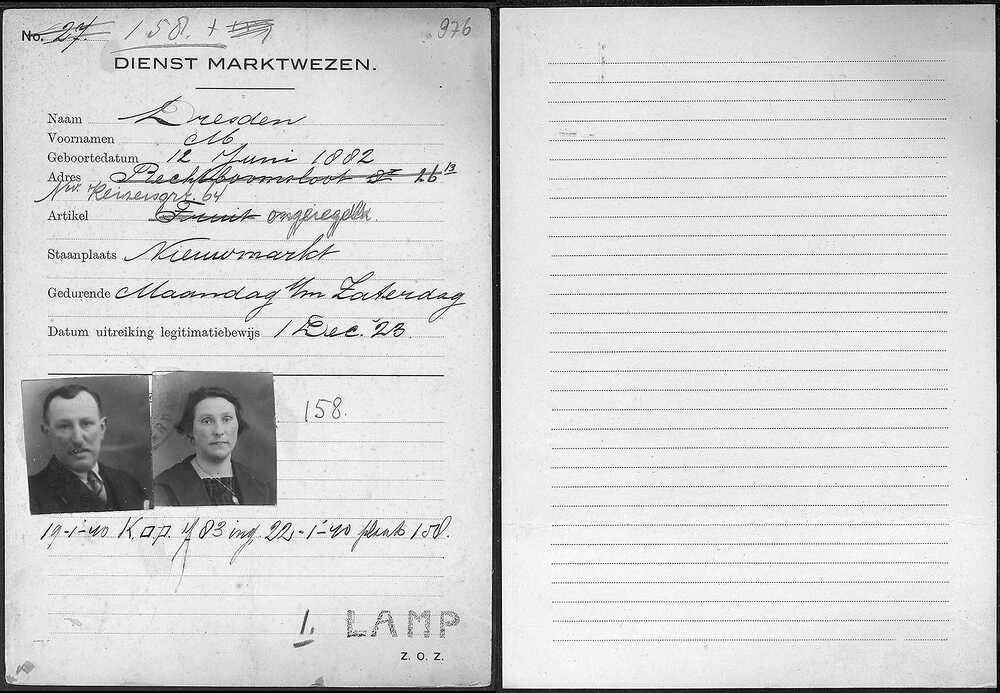 No. 27. 158. +
976
DIENST MARKTWEZEN.
Naam Dresden
Voornamen M
Geboortedatum 12 Juni 1882
Adres Rechtboomsloot 16 13
Nw. Keizersgr. 64
Artikel Fruit ongeregeld.
Staanplaats Nieuwmarkt
Gedurende Maandag t/m Zaterdag
Datum uitreiking legitimatiebewijs 1 Dec. '23
158.
19-1-'40 K.o.p. 83 ing. 22-1-'40 plaats 158.
1. LAMP
Z. O. Z.